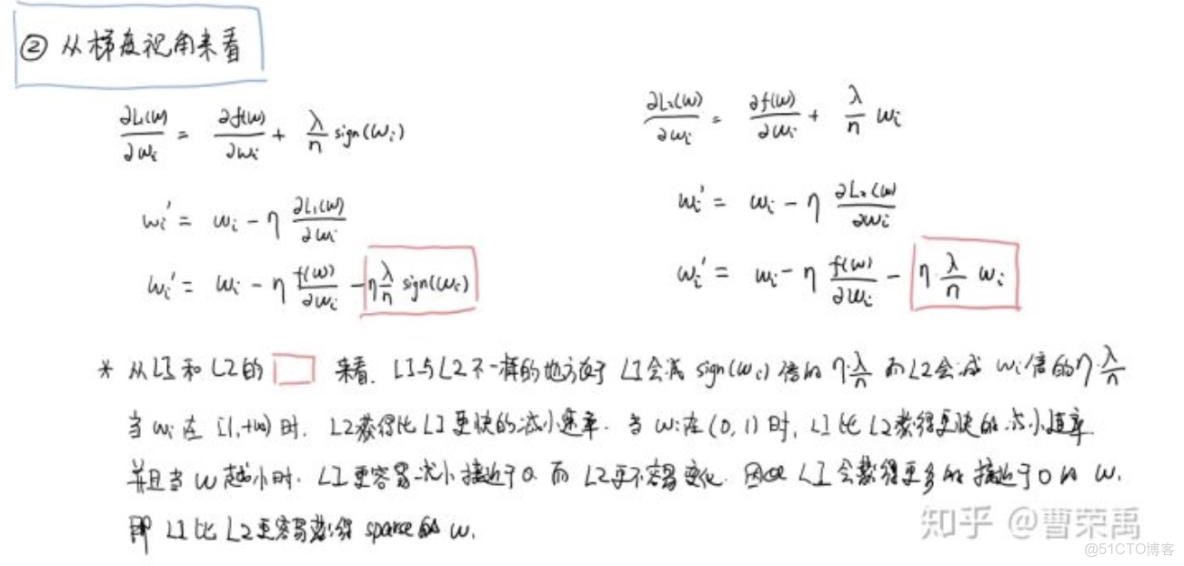 ② 从梯度视角来看
∂L₁(w)/∂wᵢ = ∂f(w)/∂wᵢ + λ/n sign(wᵢ)
wᵢ' = wᵢ - η ∂L₁(w)/∂wᵢ
wᵢ' = wᵢ - η f(w)/∂wᵢ - η λ/n sign(wᵢ)
∂L₂(w)/∂wᵢ = ∂f(w)/∂wᵢ + λ/n wᵢ
wᵢ' = wᵢ - η ∂L₂(w)/∂wᵢ
wᵢ' = wᵢ - η f(w)/∂wᵢ - η·λ/n wᵢ
* 从L1和L2的 来看. L1与L2不一样的地方在于 L1会减 sign(wᵢ) 倍的 η·λ/n 而L2会减 wᵢ倍的η·λ/n
当 wᵢ 在 (1,+∞) 时. L2获得比L1更快的减小速率. 当 wᵢ在(0,1)时, L1比L2获得更快的减小速率
并且当 w 越小时. L1更容易减小接近于0. 而 L2更不容易变化. 因此 L1会获得更多的接近于0的 w.
即 L1比L2更容易获得 sparse的 w.
知乎 @曹荣禹
@51CTO博客